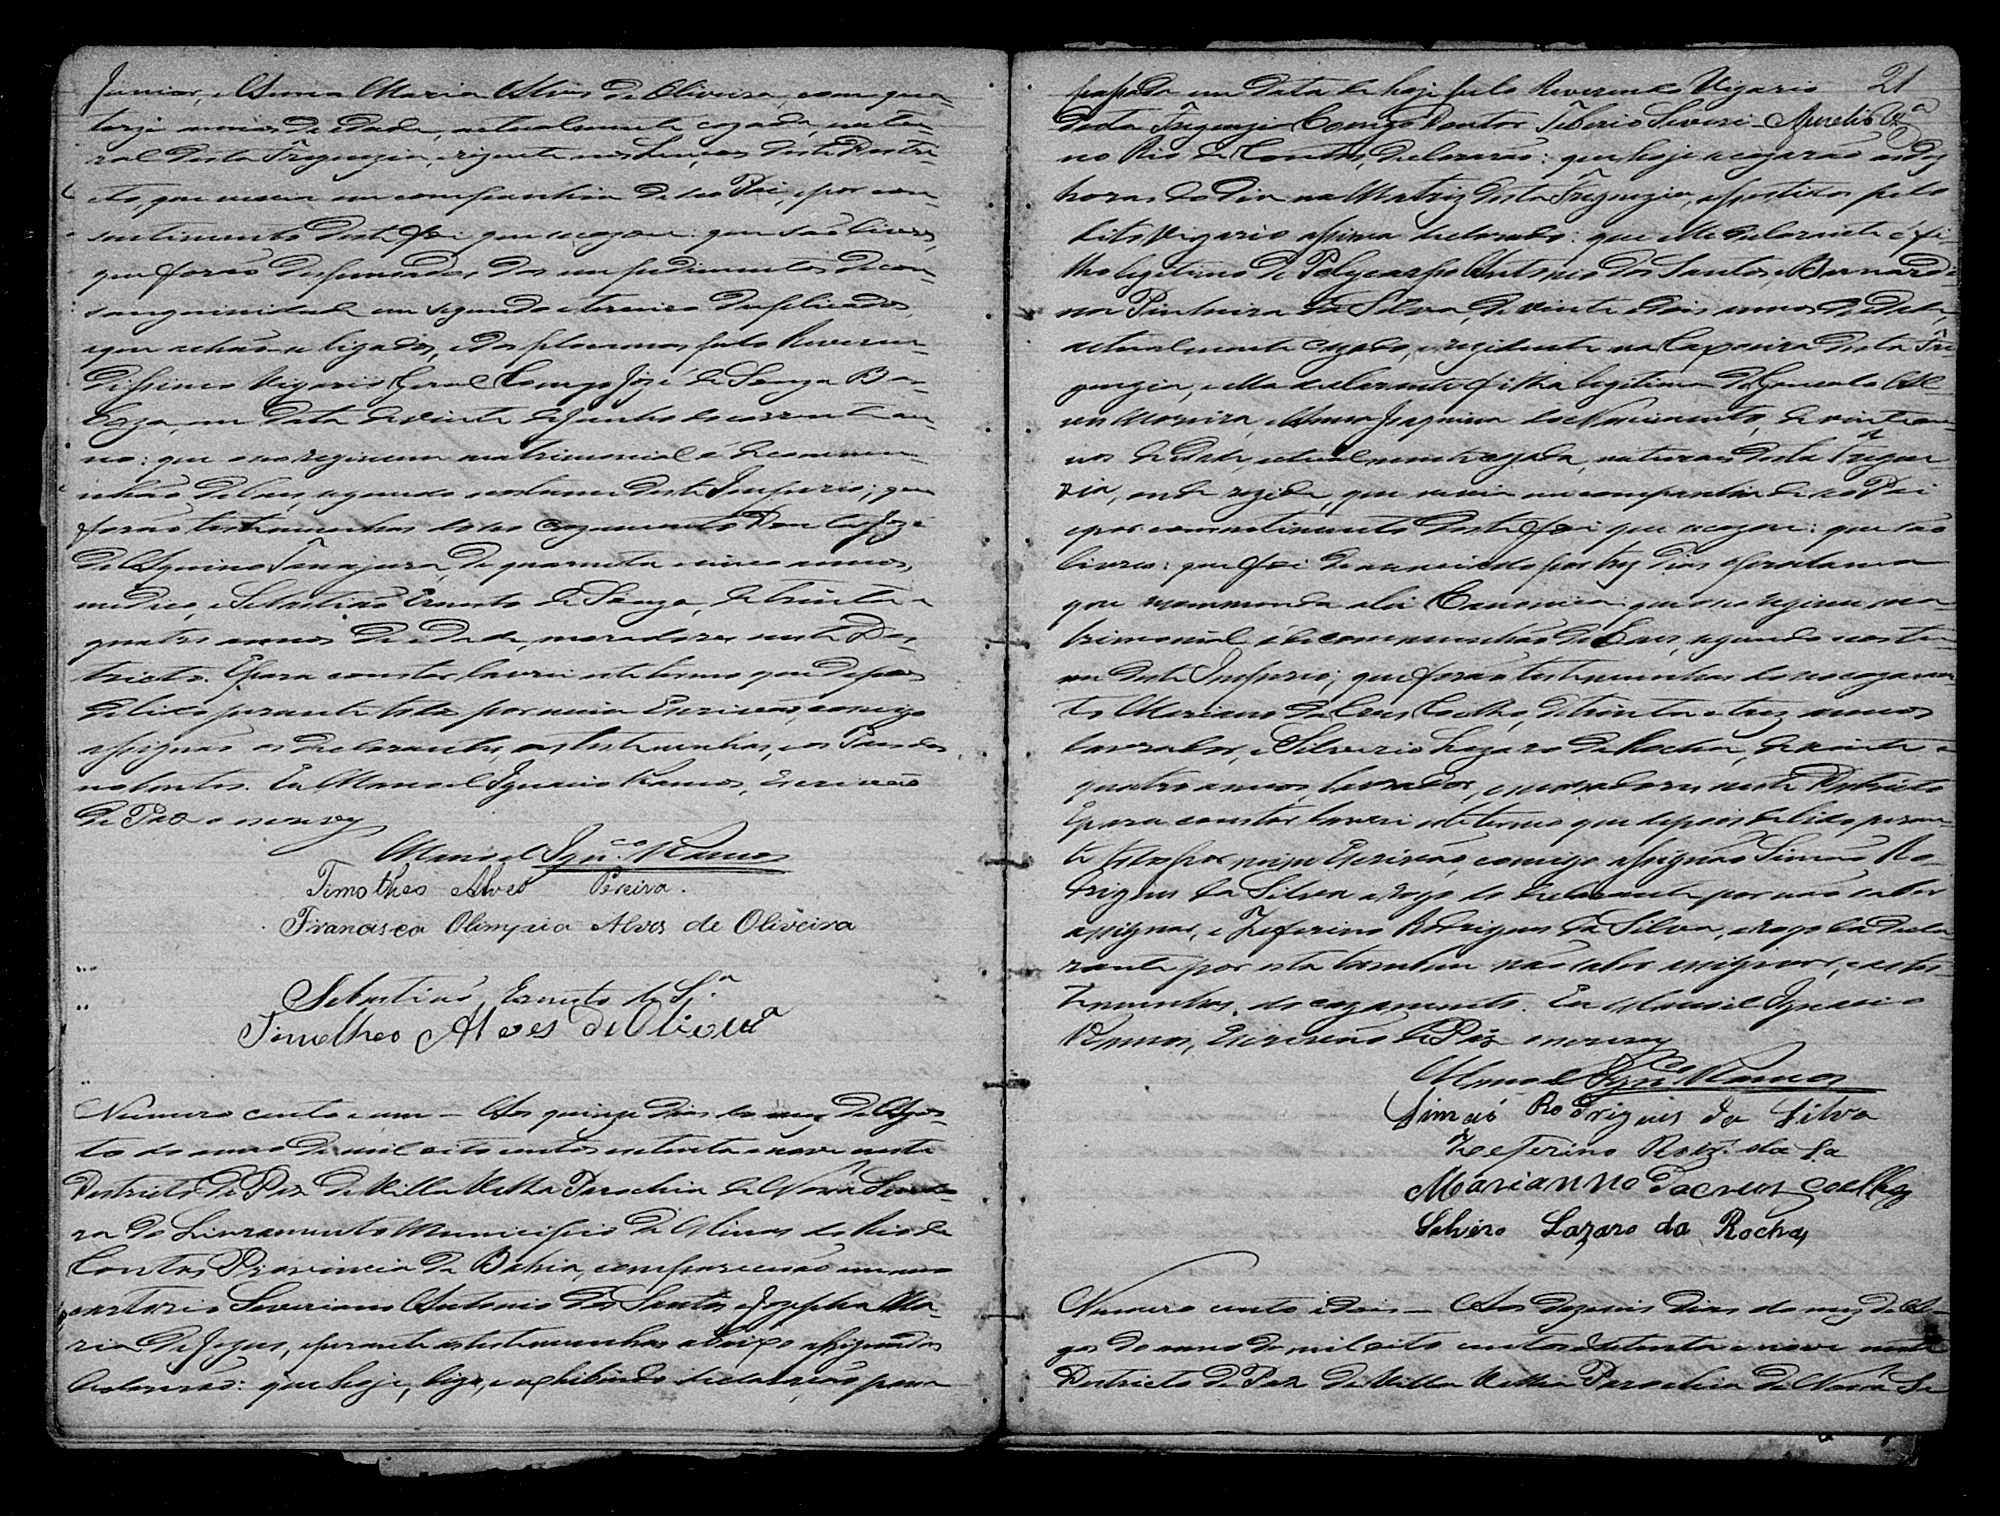 Junior, e Anna Maria Alves de Oliveira, com qua-
torze annos de edade, actualmente cazada, natu-
ral desta Freguezia, rezidente nos deste Destri-
cto, que vivia em companhia de seo Pai, e por con-
sentimento deste foi que se cazou: que são livres,
que forão despensados dos empedimentos de con-
sanguinidade em segundo e terceiro duplicados,
a que achão-se ligados, e dos pelo Reveren-
dissimo Vigario Geral Conego José de Souza Bar-
boza, em data de vinte de Junho do corrente an-
no: que o seo regimem matrimonial é de commu-
nhão de bens, segundo costume deste Imperio; que
forão testemunhas do seo cazamento Doutor José
de Aquino Tanajura, de quarenta e cinco annos,
medico, e Sebastião Ernesto de Souza, de trinta e
quatro annos de edade, moradores neste Des-
tricto. E para constar lavrei este termo que depois
de lido perante todos por mim Escrivão, comigo
assignão os declarantes, as testemunhas, e os Paes dos
. Eu Manoel Ignacio Ramos, Escrivão
de Paz o escrevy
Manoel Ign.co Ramos
Timotheo Alves Pereira.
Francisca Olimpia Alves de Oliveira
Sebastião Ernesto de S.a
Timotheo Alves de Oliveira
Numero cento e um — Aos quinze dias do mez de Agos-
to do anno de mil oito centos e setenta e nove neste
Destricto de Paz de Villa Velha Parochia de Nossa Senho-
ra do Livramento Municipio de Minas do Rio de
Contas Provincia da Bahia, comparecerão em meo
cartorio Severiano Antonio dos Santos e Jozepha Ma-
ria de Jezus, e perante as testemunhas abaixo assignadas
declararão: que hoje, digo, e exhibindo declaração para
21
passada em data de hoje pelo Reverendo Vigario
desta Freguezia Conego Doutor Tiberio Severi-
no Rio de Contas, declararão: que hoje se cazarão as dez
horas do dia na Matriz desta Freguezia, assistidos pelo
dito Vigario assima declarado: que elle declarante é fi-
lho legitimo de Polycarpo Antonio dos Santos, e Bernardi-
na Pinheira da Silva, de vinte e dois annos de edade,
actualmente cazado, e rezidente na Capoeira desta Fre-
guezia, e ella declarante filha legitima de Goncalo Al-
ves Moreira, e Anna Joaquina do Nascimento, de vinte an-
nos de edade, actualmente cazada, naturaes desta Fregue-
zia, onde rezide, que vivia em companhia de seo Pai
e por consentimento deste foi que se cazou: que são
livres: que foi denunciado por trez dias
que recommenda a lei Canonica: que o seo regimem ma-
trimonial é de communhão de bens, segundo costu-
me deste Imperio; que forão testemunhas do seo cazamen-
to Mariano da Crus Coelho, de trinta e trez annos
lavrador, e Silverio Lazaro da Rocha, de vinte e
quatro annos, lavrador, e moradores neste Destricto
E para constar lavrei este termo que depois de lido peran-
te todos por mim Escrivão, comigo assignão Simão Ro-
drigues da Silva a rogo do declarante por não saber
assignar, e Zeferino Rodrigues da Silva, a rogo da decla-
rante por esta tambem não saber assignar, e as tes-
temunhas do cazamento. Eu Manoel Ignacio
Ramos, Escrivão de Paz o escrevy
Manoel Ign.co Ramos
Simão Rodrigues da Silva
Zeferino Roiz da Sa
Marianno da creus Coelho
Selvero Lazaro da Rocha
Numero cento e dois — Aos dezeseis dias do mez de A-
gos do anno de mil oito centos e setenta e nove neste
Destricto de Paz de Villa Velha Parochia de Nossa Se